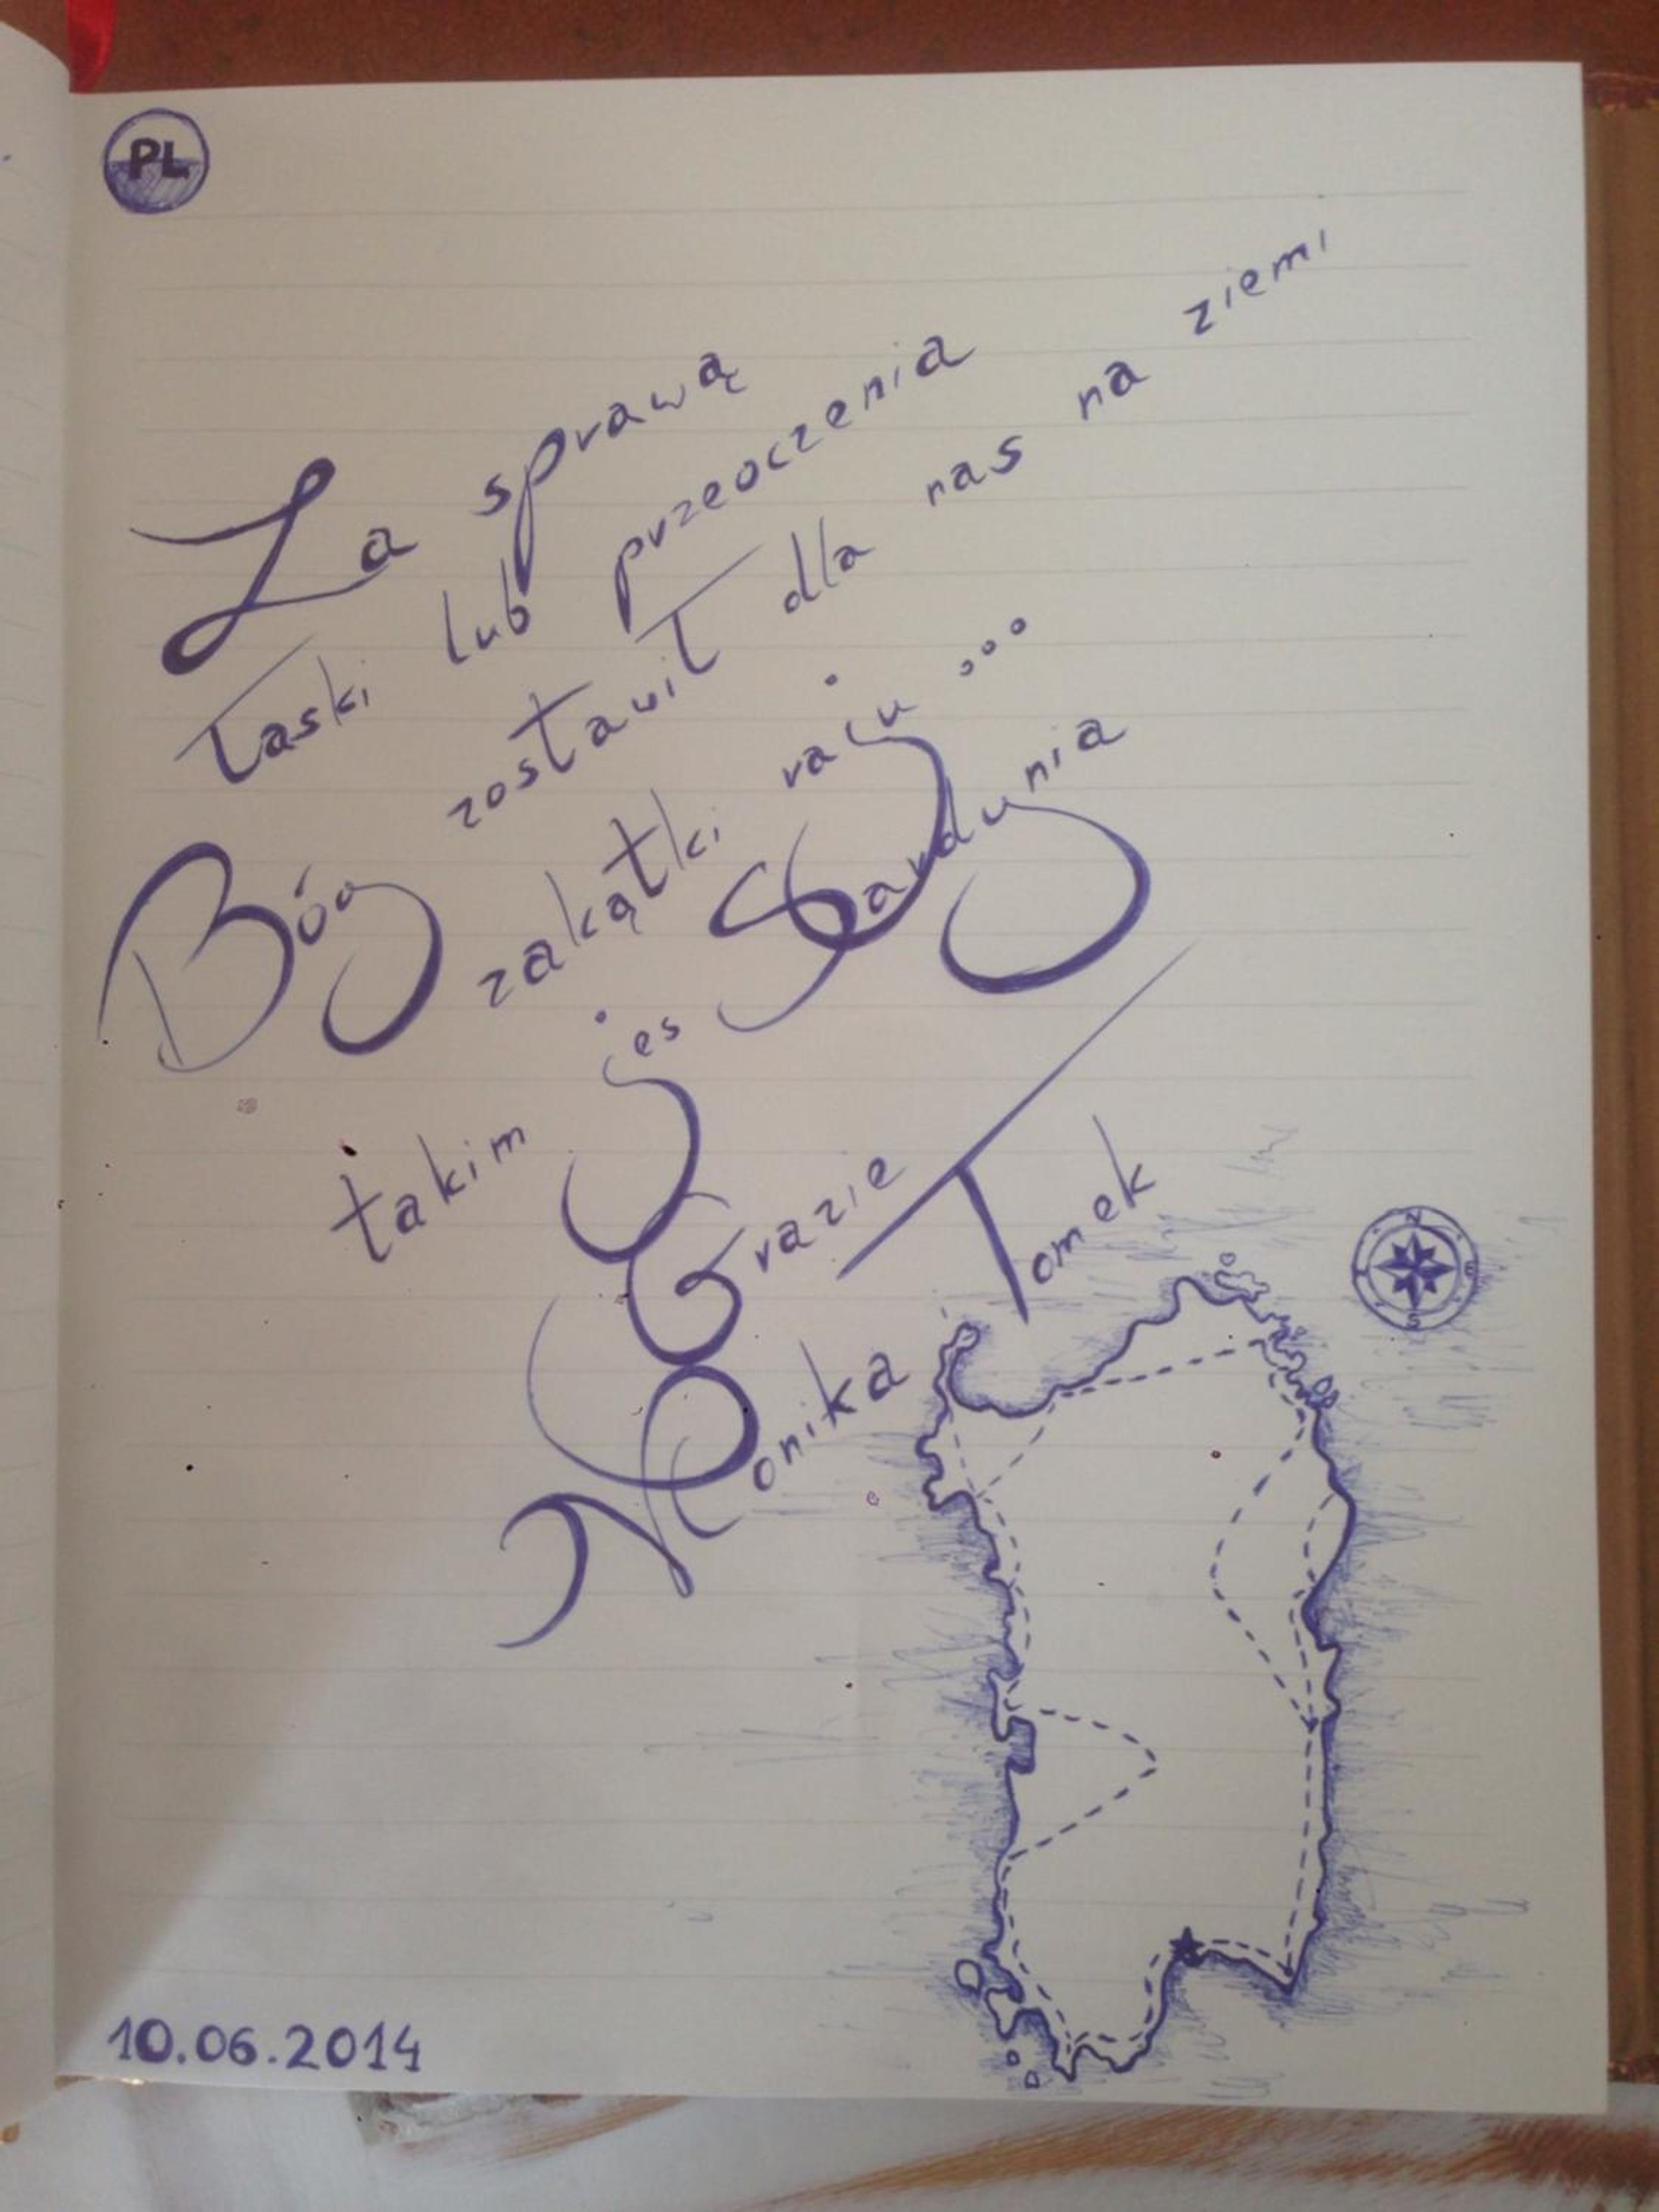 PL
Za sprawą
łaski lub przeoczenia
Bóg zostawił dla nas na ziemi
zakątki raju ...
takim jes Sardynia
Grazie
Monika Tomek
N
S
10.06.2014